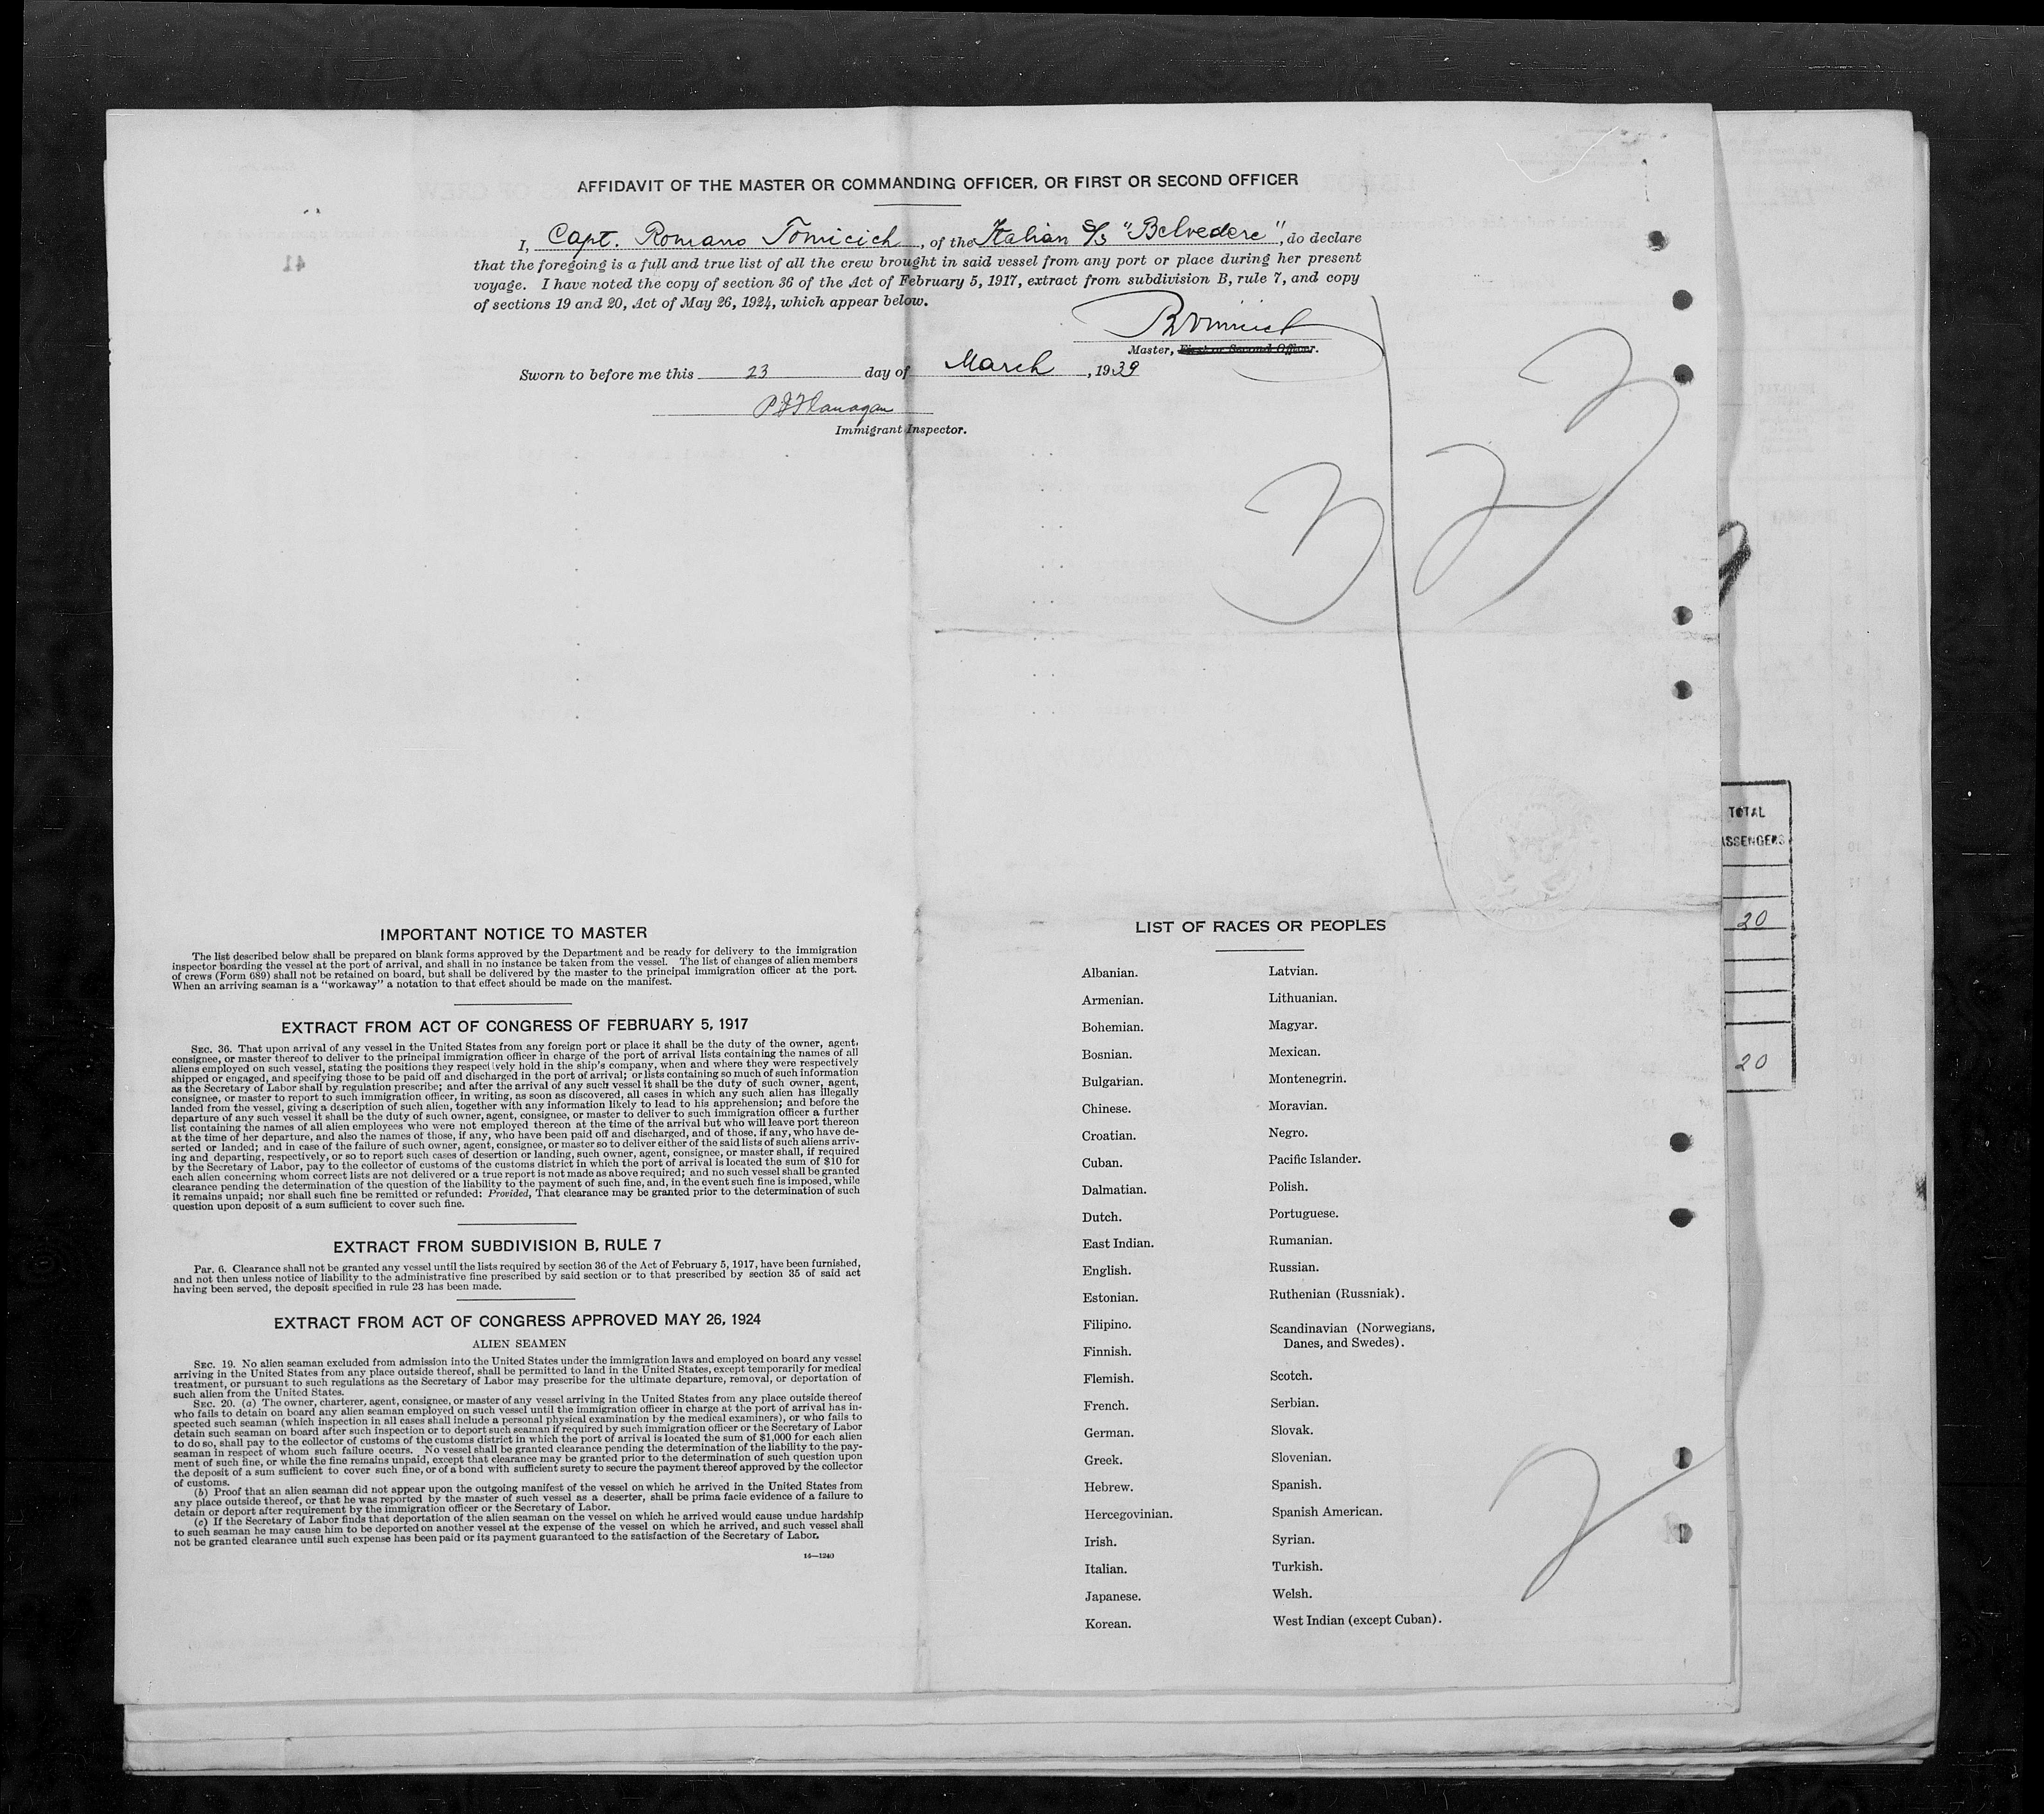 AFFIDAVIT OF THE MASTER OR COMMANDING OFFICER, OR FIRST OR SECOND OFFICER
I, Capt. Romano Tomicich, of the Italian S/S "Belvedere", do declare
that the foregoing is a full and true list of all the crew brought in said vessel from any port or place during her present
voyage. I have noted the copy of section 36 of the Act of February 5, 1917, extract from subdivision B, rule 7, and copy
of sections 19 and 20, Act of May 26, 1924, which appear below.
Master, First or Second Officer.
Sworn to before me this 23 day of March, 1939
P J Flanagan
Immigrant Inspector.
41
3/22
TOTAL
ASSENGERS
20
20
IMPORTANT NOTICE TO MASTER
The list described below shall be prepared on blank forms approved by the Department and be ready for delivery to the immigration
inspector boarding the vessel at the port of arrival, and shall in no instance be taken from the vessel. The list of changes of alien members
of crews (Form 689) shall not be retained on board, but shall be delivered by the master to the principal immigration officer at the port.
When an arriving seaman is a "workaway" a notation to that effect should be made on the manifest.
EXTRACT FROM ACT OF CONGRESS OF FEBRUARY 5, 1917
SEC. 36. That upon arrival of any vessel in the United States from any foreign port or place it shall be the duty of the owner, agent,
consignee, or master thereof to deliver to the principal immigration officer in charge of the port of arrival lists containing the names of all
aliens employed on such vessel, stating the positions they respectively hold in the ship's company, when and where they were respectively
shipped or engaged, and specifying those to be paid off and discharged in the port of arrival; or lists containing so much of such information
as the Secretary of Labor shall by regulation prescribe; and after the arrival of any such vessel it shall be the duty of such owner, agent,
consignee, or master to report to such immigration officer, in writing, as soon as discovered, all cases in which any such alien has illegally
landed from the vessel, giving a description of such alien, together with any information likely to lead to his apprehension; and before the
departure of any such vessel it shall be the duty of such owner, agent, consignee, or master to deliver to such immigration officer a further
list containing the names of all alien employees who were not employed thereon at the time of the arrival but who will leave port thereon
at the time of her departure, and also the names of those, if any, who have been paid off and discharged, and of those, if any, who have de-
serted or landed; and in case of the failure of such owner, agent, consignee, or master so to deliver either of the said lists of such aliens arriv-
ing and departing, respectively, or so to report such cases of desertion or landing, such owner, agent, consignee, or master shall, if required
by the Secretary of Labor, pay to the collector of customs of the customs district in which the port of arrival is located the sum of $10 for
each alien concerning whom correct lists are not delivered or a true report is not made as above required; and no such vessel shall be granted
clearance pending the determination of the question of the liability to the payment of such fine, and, in the event such fine is imposed, while
it remains unpaid; nor shall such fine be remitted or refunded: Provided, That clearance may be granted prior to the determination of such
question upon deposit of a sum sufficient to cover such fine.
EXTRACT FROM SUBDIVISION B, RULE 7
Par. 6. Clearance shall not be granted any vessel until the lists required by section 36 of the Act of February 5, 1917, have been furnished,
and not then unless notice of liability to the administrative fine prescribed by said section or to that prescribed by section 35 of said act
having been served, the deposit specified in rule 23 has been made.
EXTRACT FROM ACT OF CONGRESS APPROVED MAY 26, 1924
ALIEN SEAMEN
SEC. 19. No alien seaman excluded from admission into the United States under the immigration laws and employed on board any vessel
arriving in the United States from any place outside thereof, shall be permitted to land in the United States, except temporarily for medical
treatment, or pursuant to such regulations as the Secretary of Labor may prescribe for the ultimate departure, removal, or deportation of
such alien from the United States.
SEC. 20. (a) The owner, charterer, agent, consignee, or master of any vessel arriving in the United States from any place outside thereof
who fails to detain on board any alien seaman employed on such vessel until the immigration officer in charge at the port of arrival has in-
spected such seaman (which inspection in all cases shall include a personal physical examination by the medical examiners), or who fails to
detain such seaman on board after such inspection or to deport such seaman if required by such immigration officer or the Secretary of Labor
to do so, shall pay to the collector of customs of the customs district in which the port of arrival is located the sum of $1,000 for each alien
seaman in respect of whom such failure occurs. No vessel shall be granted clearance pending the determination of the liability to the pay-
ment of such fine, or while the fine remains unpaid, except that clearance may be granted prior to the determination of such question upon
the deposit of a sum sufficient to cover such fine, or of a bond with sufficient surety to secure the payment thereof approved by the collector
of customs.
(b) Proof that an alien seaman did not appear upon the outgoing manifest of the vessel on which he arrived in the United States from
any place outside thereof, or that he was reported by the master of such vessel as a deserter, shall be prima facie evidence of a failure to
detain or deport after requirement by the immigration officer or the Secretary of Labor.
(c) If the Secretary of Labor finds that deportation of the alien seaman on the vessel on which he arrived would cause undue hardship
to such seaman he may cause him to be deported on another vessel at the expense of the vessel on which he arrived, and such vessel shall
not be granted clearance until such expense has been paid or its payment guaranteed to the satisfaction of the Secretary of Labor.
16—1240
LIST OF RACES OR PEOPLES
Albanian.
Armenian.
Bohemian.
Bosnian.
Bulgarian.
Chinese.
Croatian.
Cuban.
Dalmatian.
Dutch.
East Indian.
English.
Estonian.
Filipino.
Finnish.
Flemish.
French.
German.
Greek.
Hebrew.
Hercegovinian.
Irish.
Italian.
Japanese.
Korean.
Latvian.
Lithuanian.
Magyar.
Mexican.
Montenegrin.
Moravian.
Negro.
Pacific Islander.
Polish.
Portuguese.
Rumanian.
Russian.
Ruthenian (Russniak).
Scandinavian (Norwegians,
Danes, and Swedes).
Scotch.
Serbian.
Slovak.
Slovenian.
Spanish.
Spanish American.
Syrian.
Turkish.
Welsh.
West Indian (except Cuban).